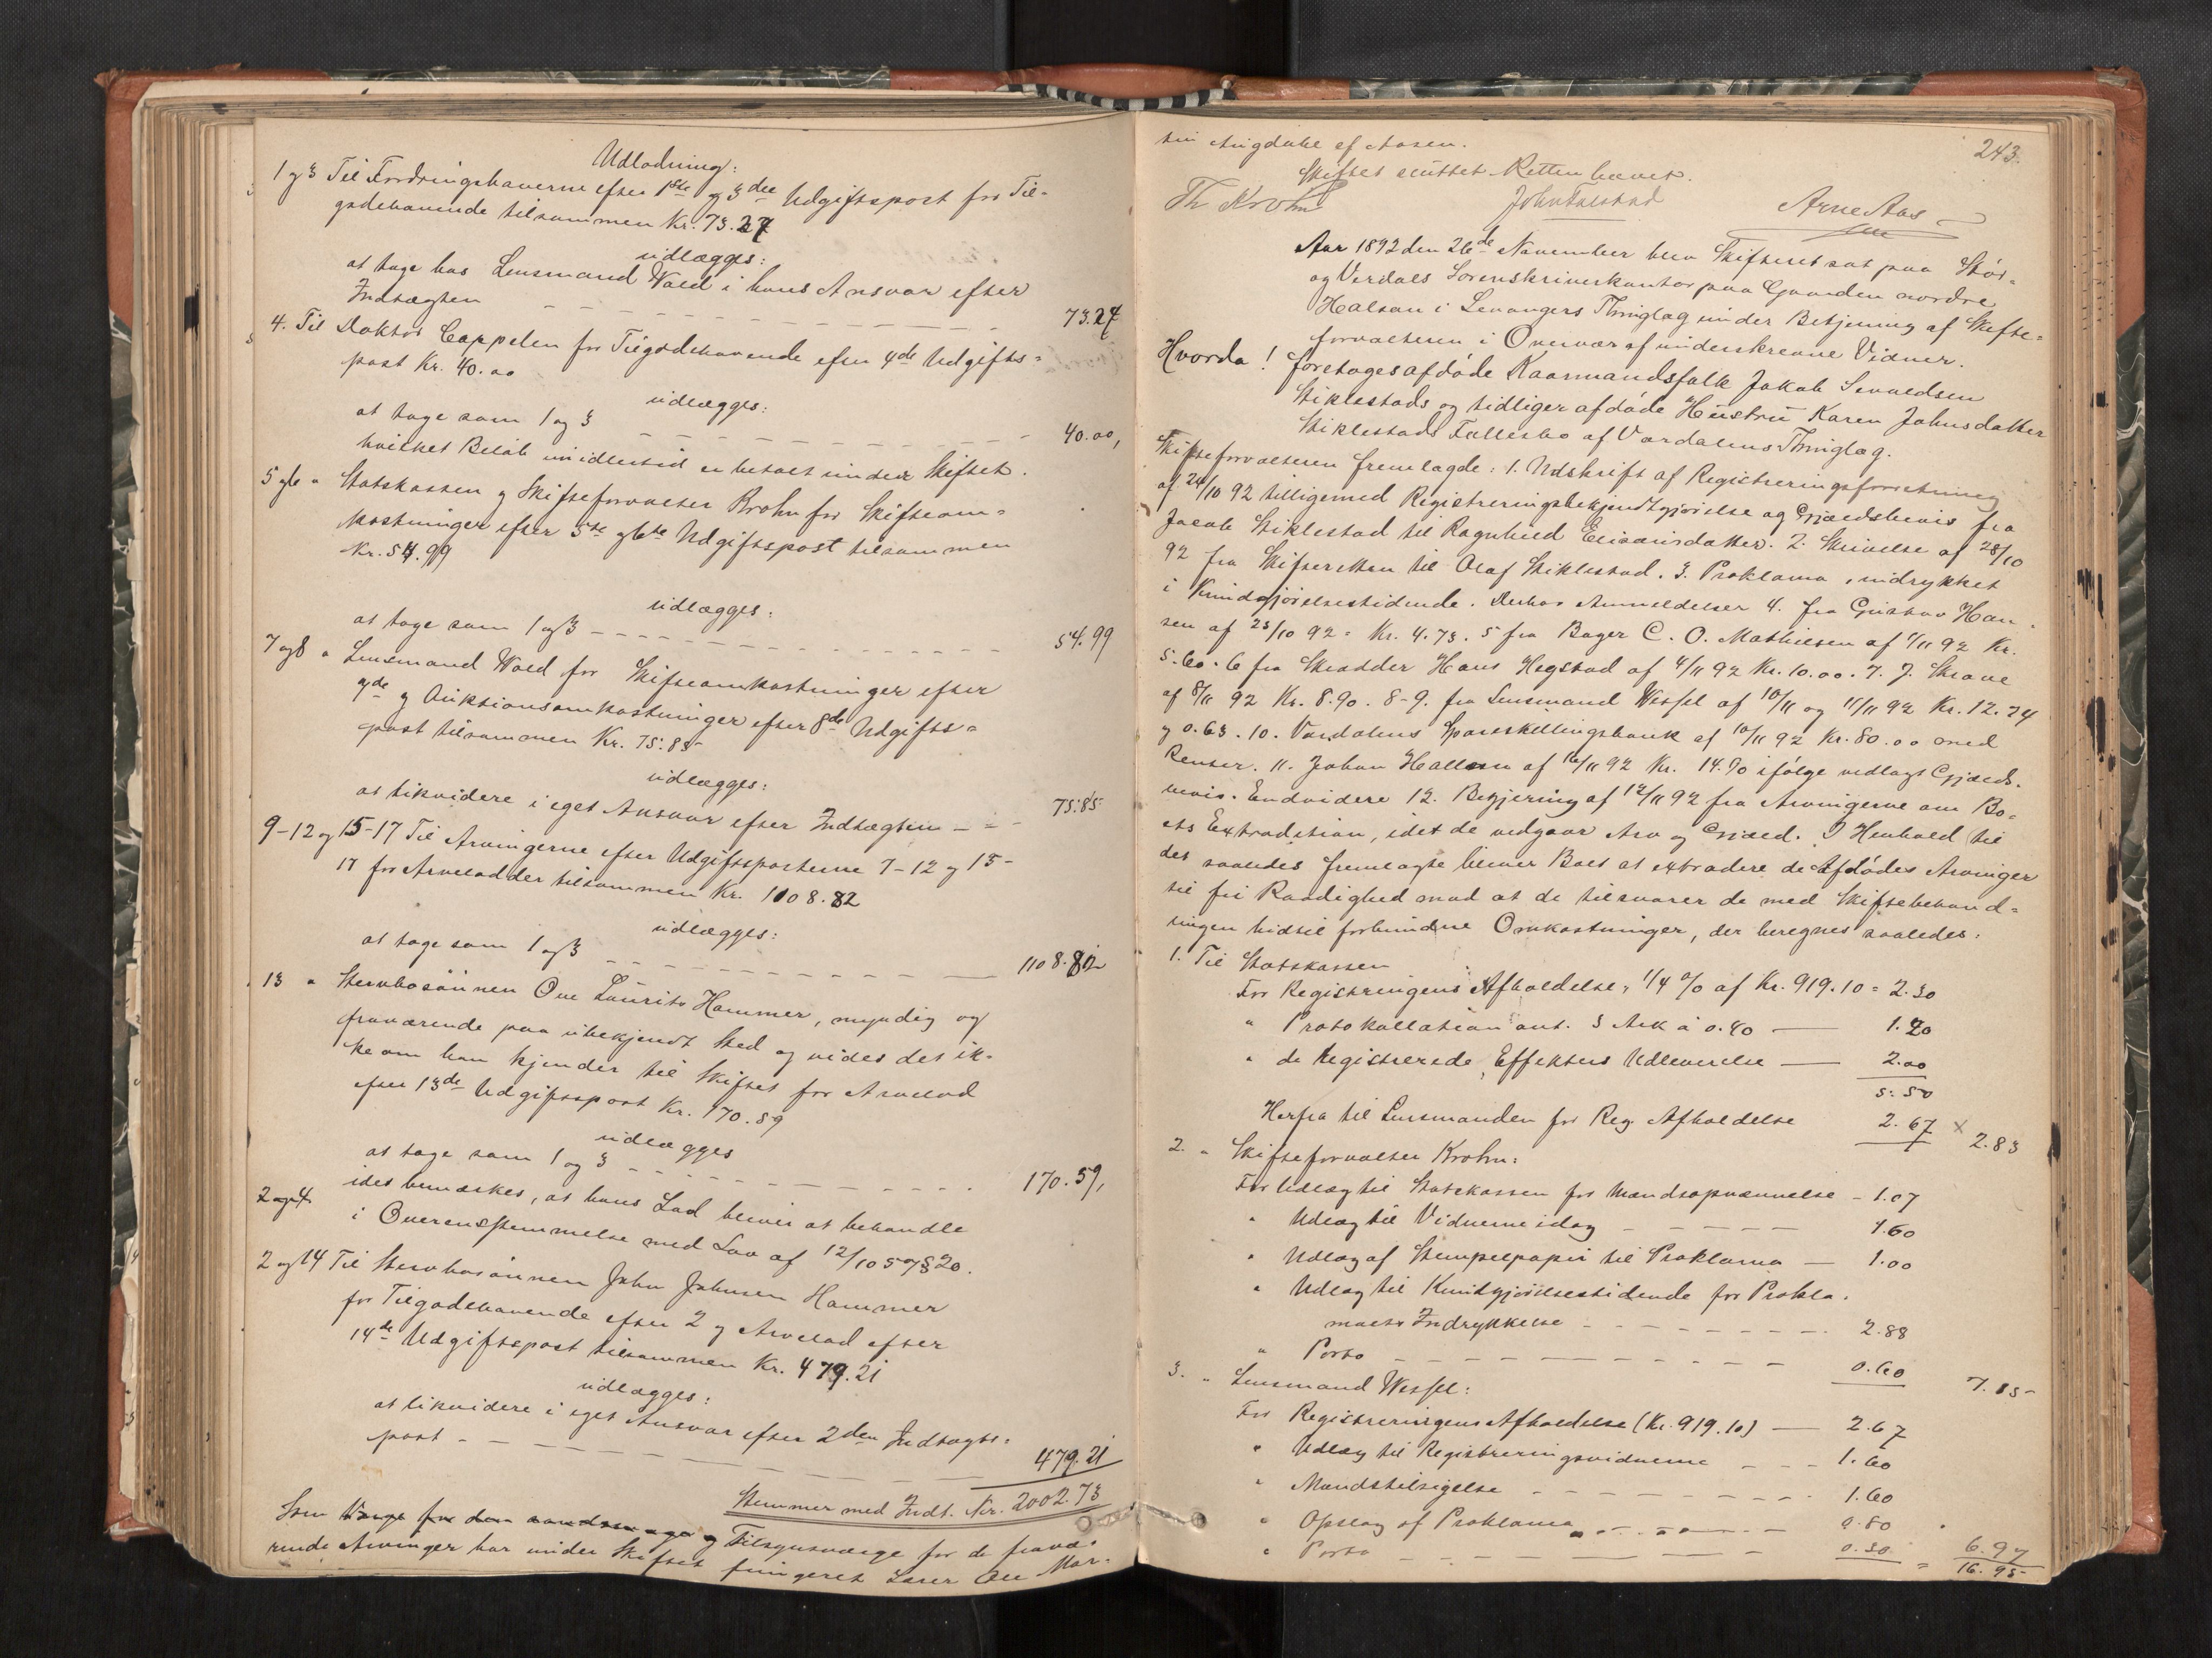 Udlodning:
1 og 3 Til Fordringshaverne efter 1ste og 3die Udgiftspost for Til-
godehavende tilsammen Kr. 73.27
udlægges:
at tage hos Lensmand Wold i hans Ansvar efter
Indtægten 73.27
4. Til Doktor Cappelen for Tilgodehavende efter 4de Udgifts-
post Kr. 40.00
udlægges:
at tage som 1 og 3 40.00,
hvilket Beløb imidlertid er betalt under Skiftet.
5 og 6 " Statskassen og Skifteforvalter Krohn for Skifteom-
kostninger efter 5te og 6te Udgiftspost tilsammen
Kr. 54.99
udlægges:
at tage som 1 og 3 54.99
7 og 8 " Lensmand Wold for Skifteomkostninger efter
7de og Auktionsomkostninger efter 8de Udgifts-
post tilsammen Kr. 75.85
udlægges:
at likvidere i eget Ansvar efter Indtægten 75.85
9-12 og 15-17 Til Arvingerne efter Udgiftsposterne 9-12 og 15-
17 for Arvelodder tilsammen Kr. 1108.82
udlægges:
at tage som 1 og 3 1108.82
13 " Stervbosønnen Ove Laurits Hammer, myndig og
fraværende paa ubekjendt Sted og vides det ik-
ke om han kjender til Skiftet for Arvelod
efter 13de Udgiftspost Kr. 170.59
udlægges
at tage som 1 og 3 170.59,
ides bemærkes, at hans Lod bliver at behandle
i Overensstemmelse med Lov af 12/10 57 § 20.
2 og 4
2 og 14 Til Stervbosønnen John Johnsen Hammer
for Tilgodehavende efter 2 og Arvelod efter
14de Udgiftspost tilsammen Kr. 479.21
udlægges:
at likvidere i eget Ansvar efter 2den Indtægts-
post 479.21
Stemmer med Indt. Kr. 2002.73
Som Værge for den og Tilsynsværge for de fravæ-
rende Arvinger har under Skiftet fungeret Lærer Ole Mar-
243.
tin Augdahl af Aasen.
Skiftet sluttet. Retten hævet.
Th Krohn John Falstad Arne Aas
Aar 1892 den 26de November blev Skifteret sat paa Stør-
og Værdals Sorenskriverkontor paa Gaarden nordre
Halsan i Levangers Thinglag under Betjening af Skifte-
forvalteren i Overvær af underskrevne Vidner.
Hvorda! foretoges afdøde Kaarmandsfolk Jakob Sevaldsen
Stiklestads og tidliger afdøde Hustru Karen Johnsdatter
Stiklestads Fællesbo af Værdalens Thinglag.
Skifteforvalteren fremlagde: 1. Udskrift af Registreringsforretning
af 24/10 92 tilligemed Registreringsbekjendtgjørelse og Gjældsbevis fra
Jacob Stiklestad til Ragnhild Elisæusdatter. 2. Skrivelse af 28/10
92 fra Skifteretten til Olaf Stiklestad. 3. Proklama, indrykket
i Kundgjørelsestidende. Derhos Anmeldelser 4. fra Gustav Han-
sen af 23/10 92 = Kr. 4.73. 5 fra Bager C. O. Mathiesen af 1/11 92 Kr.
5.60. 6 fra Skrædder Hans Hegstad af 4/11 92 Kr. 10.00. 7. J. Skrove
af 8/11 92 Kr. 8.90. 8-9. fra Lensmand Wessel af 10/11 og 11/11 92 Kr. 12.24
og 0.63. 10. Værdalens Spareskillingsbank af 10/11 92 Kr. 80.00 med
Renter. 11. Johan Hallem af 16/11 92 Kr. 14.70 ifølge vedlagt Gjælds-
bevis. Endvidere 12. Begjering af 12/11 92 fra Arvingerne om Bo-
ets Extradition, idet de vedgaar Arv og Gjæld. I Henhold til
det saaledes fremlagte bliver Boet at extradere de Afdødes Arvinger
til fri Raadighed mod at de tilsvarer de med Skiftebehand-
lingen hidtil forbundne Omkostninger, der beregnes saaledes:
1. Til Statskassen
For Registreringens Afholdelse, 1/4 % af Kr. 919.10 = 2.30
" Protokollation ant. 3 Ark a 0.40 1.20
" de Registrerede Effekters Udleverelse 2.00
5.50
Herfra til Lensmanden for Reg. Afholdelse 2.67 × 2.83
2. " Skifteforvalter Krohn:
For Udlæg til Statskassen for Mandsopnævnelse - 1.07
" Udlæg til Vidnerne idag 1.60
" Udlæg af Stempelpapir til Proklama 1.00
" Udlæg til Kundgjørelsestidende for Prokla-
maets Indrykkelse 2.88
" Porto 0.60 7.15
3. " Lensmand Wessel:
For Registreringens Afholdelse (Kr. 919.10) 2.67
" Udlæg til Registreringsvidnerne 1.60
" Mandstilsigelse 1.60
" Opslag af Proklama 0.80
" Porto 0.30 = 6.97
16.95